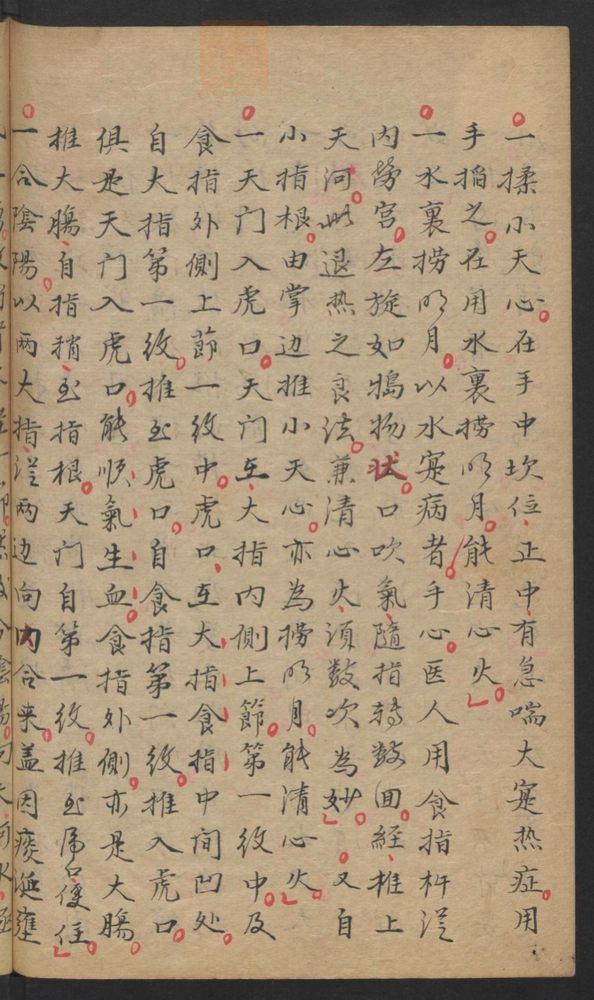 一揉小天心。在手中坎位、正中、有急喘大寔热症。用
手搯之。在用水裏捞明月。能清心火。
一水裏捞明月。以水寔病者手心。医人用食指杵從
内勞宫。左旋如搗物状。口吹氣、隨指轉数回。経推上
天河。此退热之良法。兼清心火、須数次為妙。又自
小指根。由掌边推小天心。亦為捞明月。能清心火。
一天门入虎口。天门在大指内側上節。第一纹中。及
食指外側上節一纹中。虎口、在大指食指中间凹处。
自大指第一纹。推至虎口。自食指第一纹。推入虎口。
俱是天门入虎口。能順氣生血。食指外側。亦是大腸。
推大腸、自指稍、至指根。天门自第一纹。推至虎口便住。
一合陰陽。以两大指從两边向内合来。盖因痰涎壅